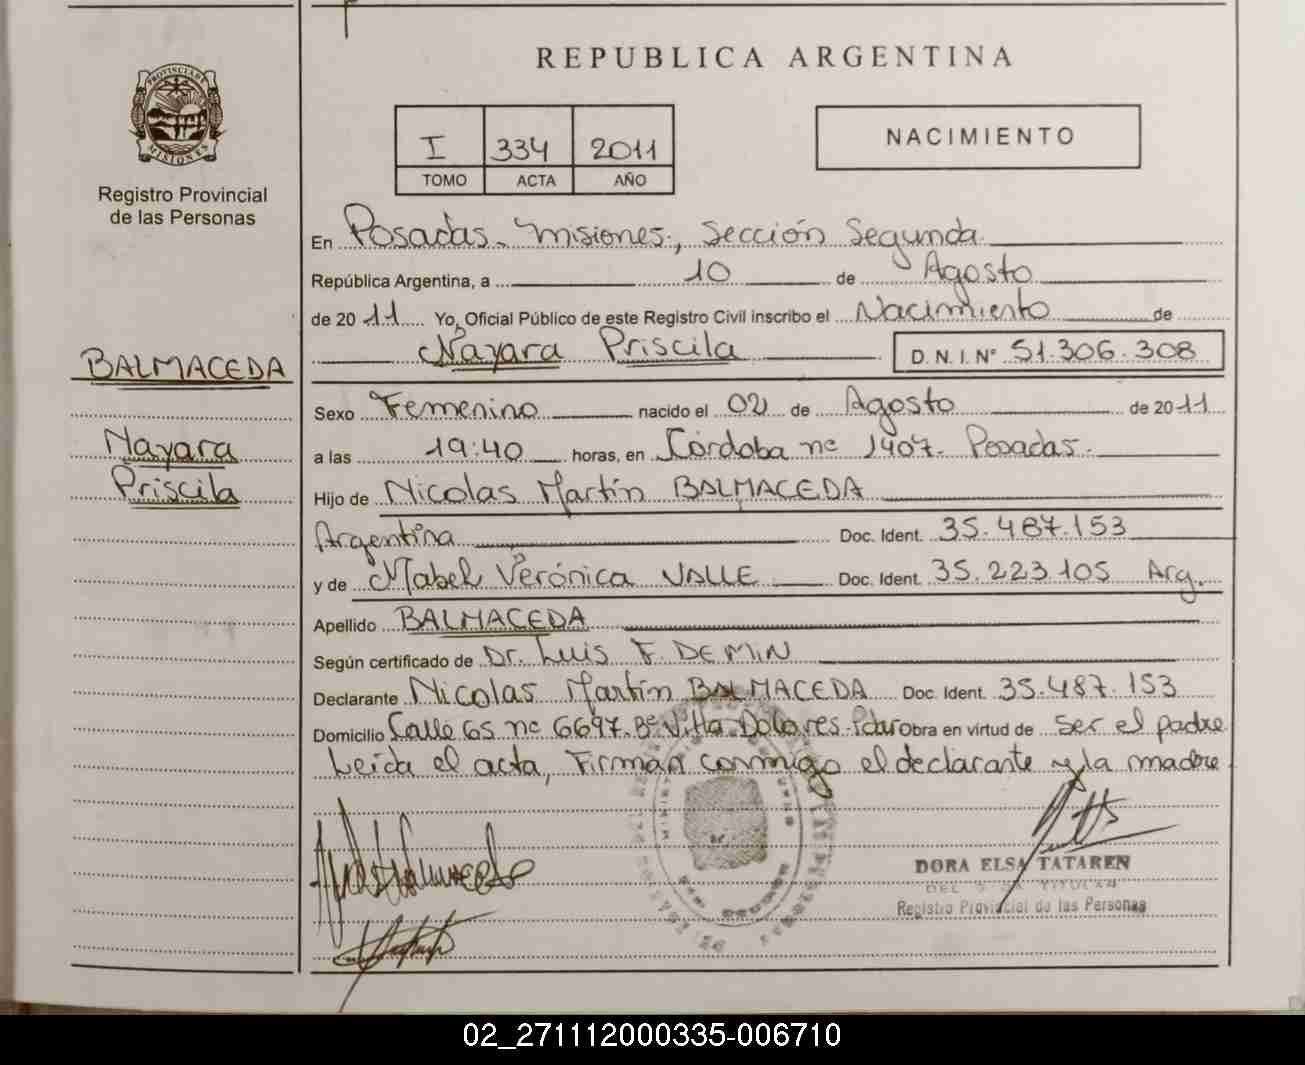 REPUBLICA ARGENTINA
PROVINCIA DE
MISIONES
Registro Provincial
de las Personas
I 334 2011
TOMO ACTA AÑO
NACIMIENTO
En Posadas. Misiones., Sección Segunda
República Argentina, a 10 de Agosto
de 2011 Yo, Oficial Público de este Registro Civil inscribo el Nacimiento de
Nayara Priscila D. N. I. N° 51.306.308
BALMACEDA
Nayara
Priscila
Sexo Femenino nacido el 02 de Agosto de 2011
a las 19:40 horas, en Córdoba nº 1407. Posadas.
Hijo de Nicolas Martín BALMACEDA
Argentina Doc. Ident. 35.487.153
y de Mabel Verónica VALLE Doc. Ident. 35.223.105 Arg.
Apellido BALMACEDA
Según certificado de Dr. Luis F. DEMIN
Declarante Nicolas Martín BALMACEDA Doc. Ident. 35.487.153
Domicilio Calle 65 nº 6697. Bº Villa Dolores. Pdas Obra en virtud de ser el padre
Leída el acta, Firman conmigo el declarante y la madre
DORA ELSA TATAREN
TITULAR
Registro Provincial de las Personas
02_271112000335-006710